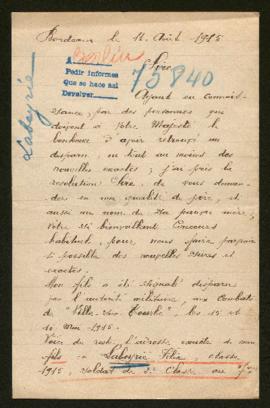 Bordeaux le 16 Août 1915
Berlin
A
Pedir informes
Que se hace así
Devolver
75840
Labeyrie
Sire
Ayant eu connais-
sance, par des personnes que
doivent à Votre Majesté le
bonheur d'avoir retrouvé un
disparu, ou tout au moins des
nouvelles exactes; j'ai pris la
resolution Sire, de vous deman-
der en ma qualité de père, et
aussi au nom de sa pauvre mère,
Votre si bienveillant Concours
habituel, pour nous faire parvenir
si possible des nouvelles sures et
exactes.
Mon fils a été signalé disparu
par l'autorité militaire, aux Combats
de "Ville-sur-Tourbe" les 15 et
16 Mai 1915.
Voici du reste, l'adresse exacte de mon
fils = Labeyrie Félix, classe
1915, soldat de 2e Classe au 7me